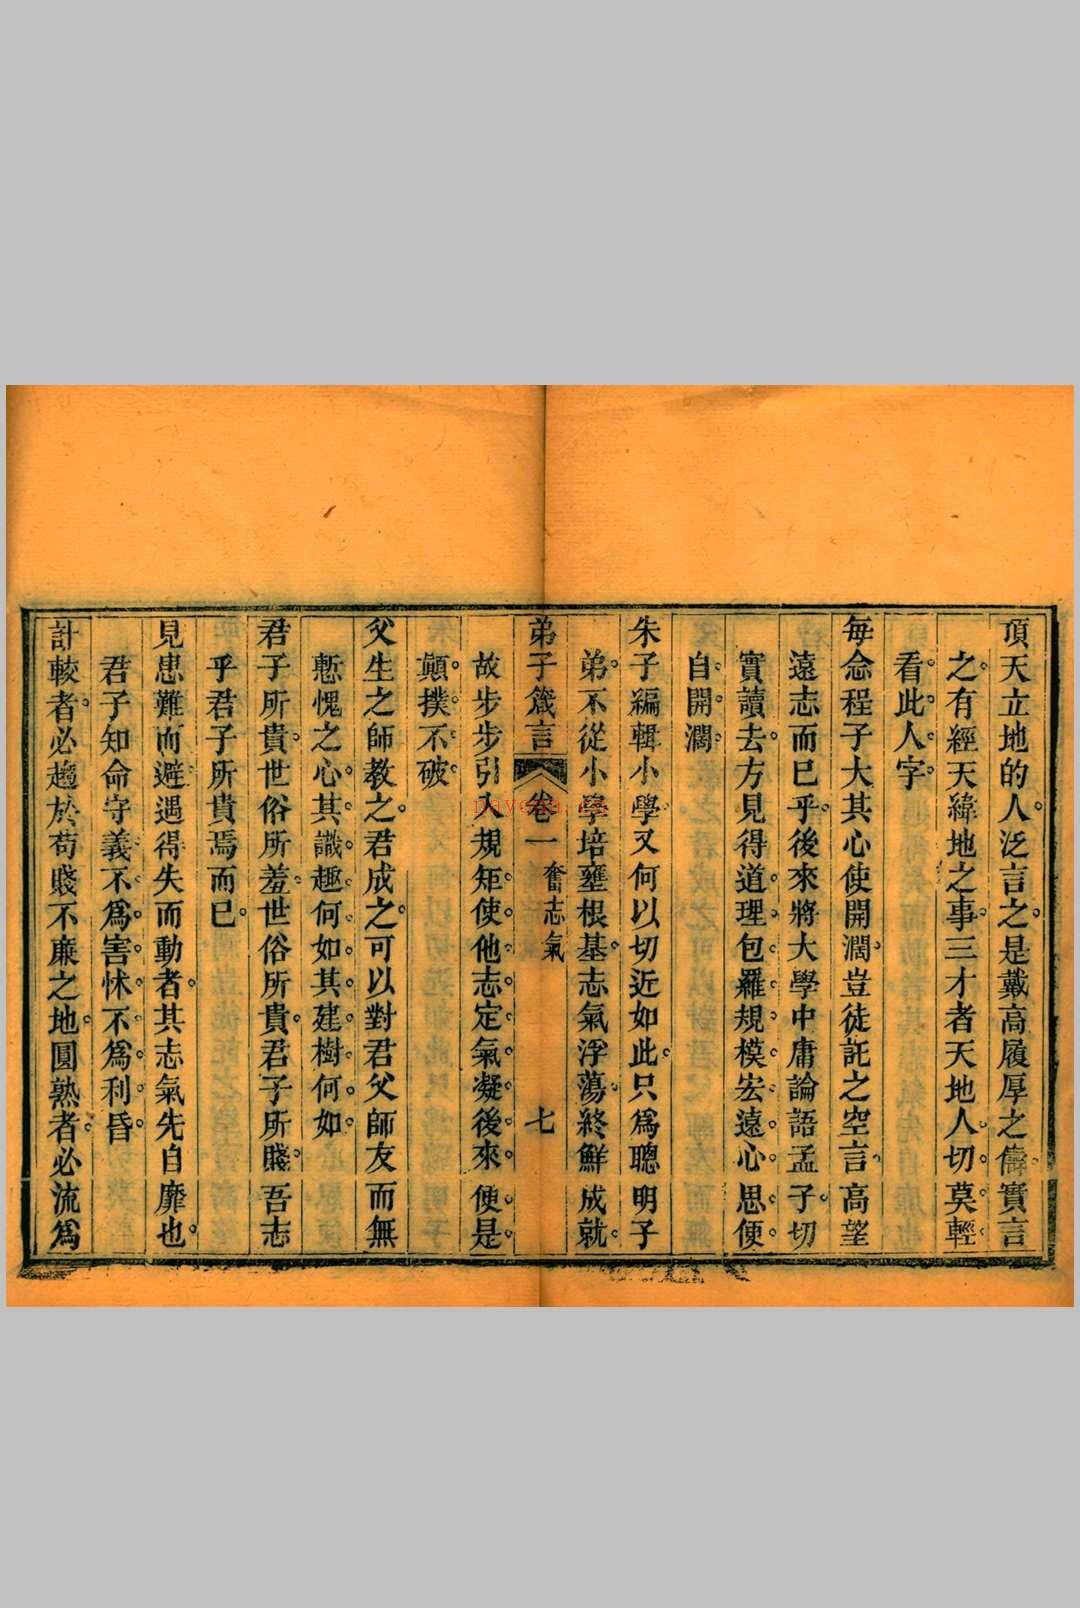 頂天立地的人泛言之是戴高履厚之儔實言
之有經天緯地之事三才者天地人切莫輕
看此人字
每念程子大其心使開濶豈徒託之空言高望
遠志而已乎後來將大學中庸論語孟子切
實讀去方見得道理包羅規模宏遠心思便
自開濶
朱子編輯小學又何以切近如此只爲聰明子
弟不從小學培壅根基志氣浮蕩終鮮成就
弟子箴言
卷一
奮志氣
七
故步步引入規矩使他志定氣凝後來便是
顛撲不破
父生之師教之君成之可以對君父師友而無
慙愧之心其識趣何如其建樹何如
君子所貴世俗所羞世俗所貴君子所賤吾志
乎君子所貴焉而已
見患難而避遇得失而動者其志氣先自靡也
君子知命守義不爲害怵不爲利昏
計較者必趨於苟賤不廉之地圓熟者必流爲